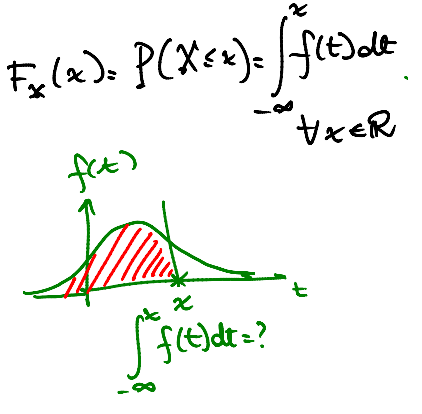 F_X(x) = P(X ≤ x) = ∫_{-∞}^{x} f(t) dt
∀ x ∈ ℝ
f(t)
x
t
∫_{-∞}^{x} f(t) dt = ?